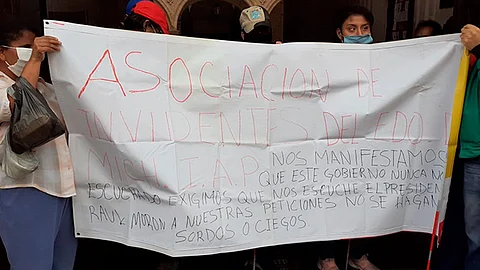 ASOCIACION DE
INVIDENTES DEL EDO
MICH I.A.P
NOS MANIFESTAMOS
QUE ESTE GOBIERNO NUNCA
ESCUCHADO EXIGIMOS QUE NOS ESCUCHE EL PRESIDEN
RAUL MORON A NUESTRAS PETICIONES NO SE HAGAN
SORDOS O CIEGOS